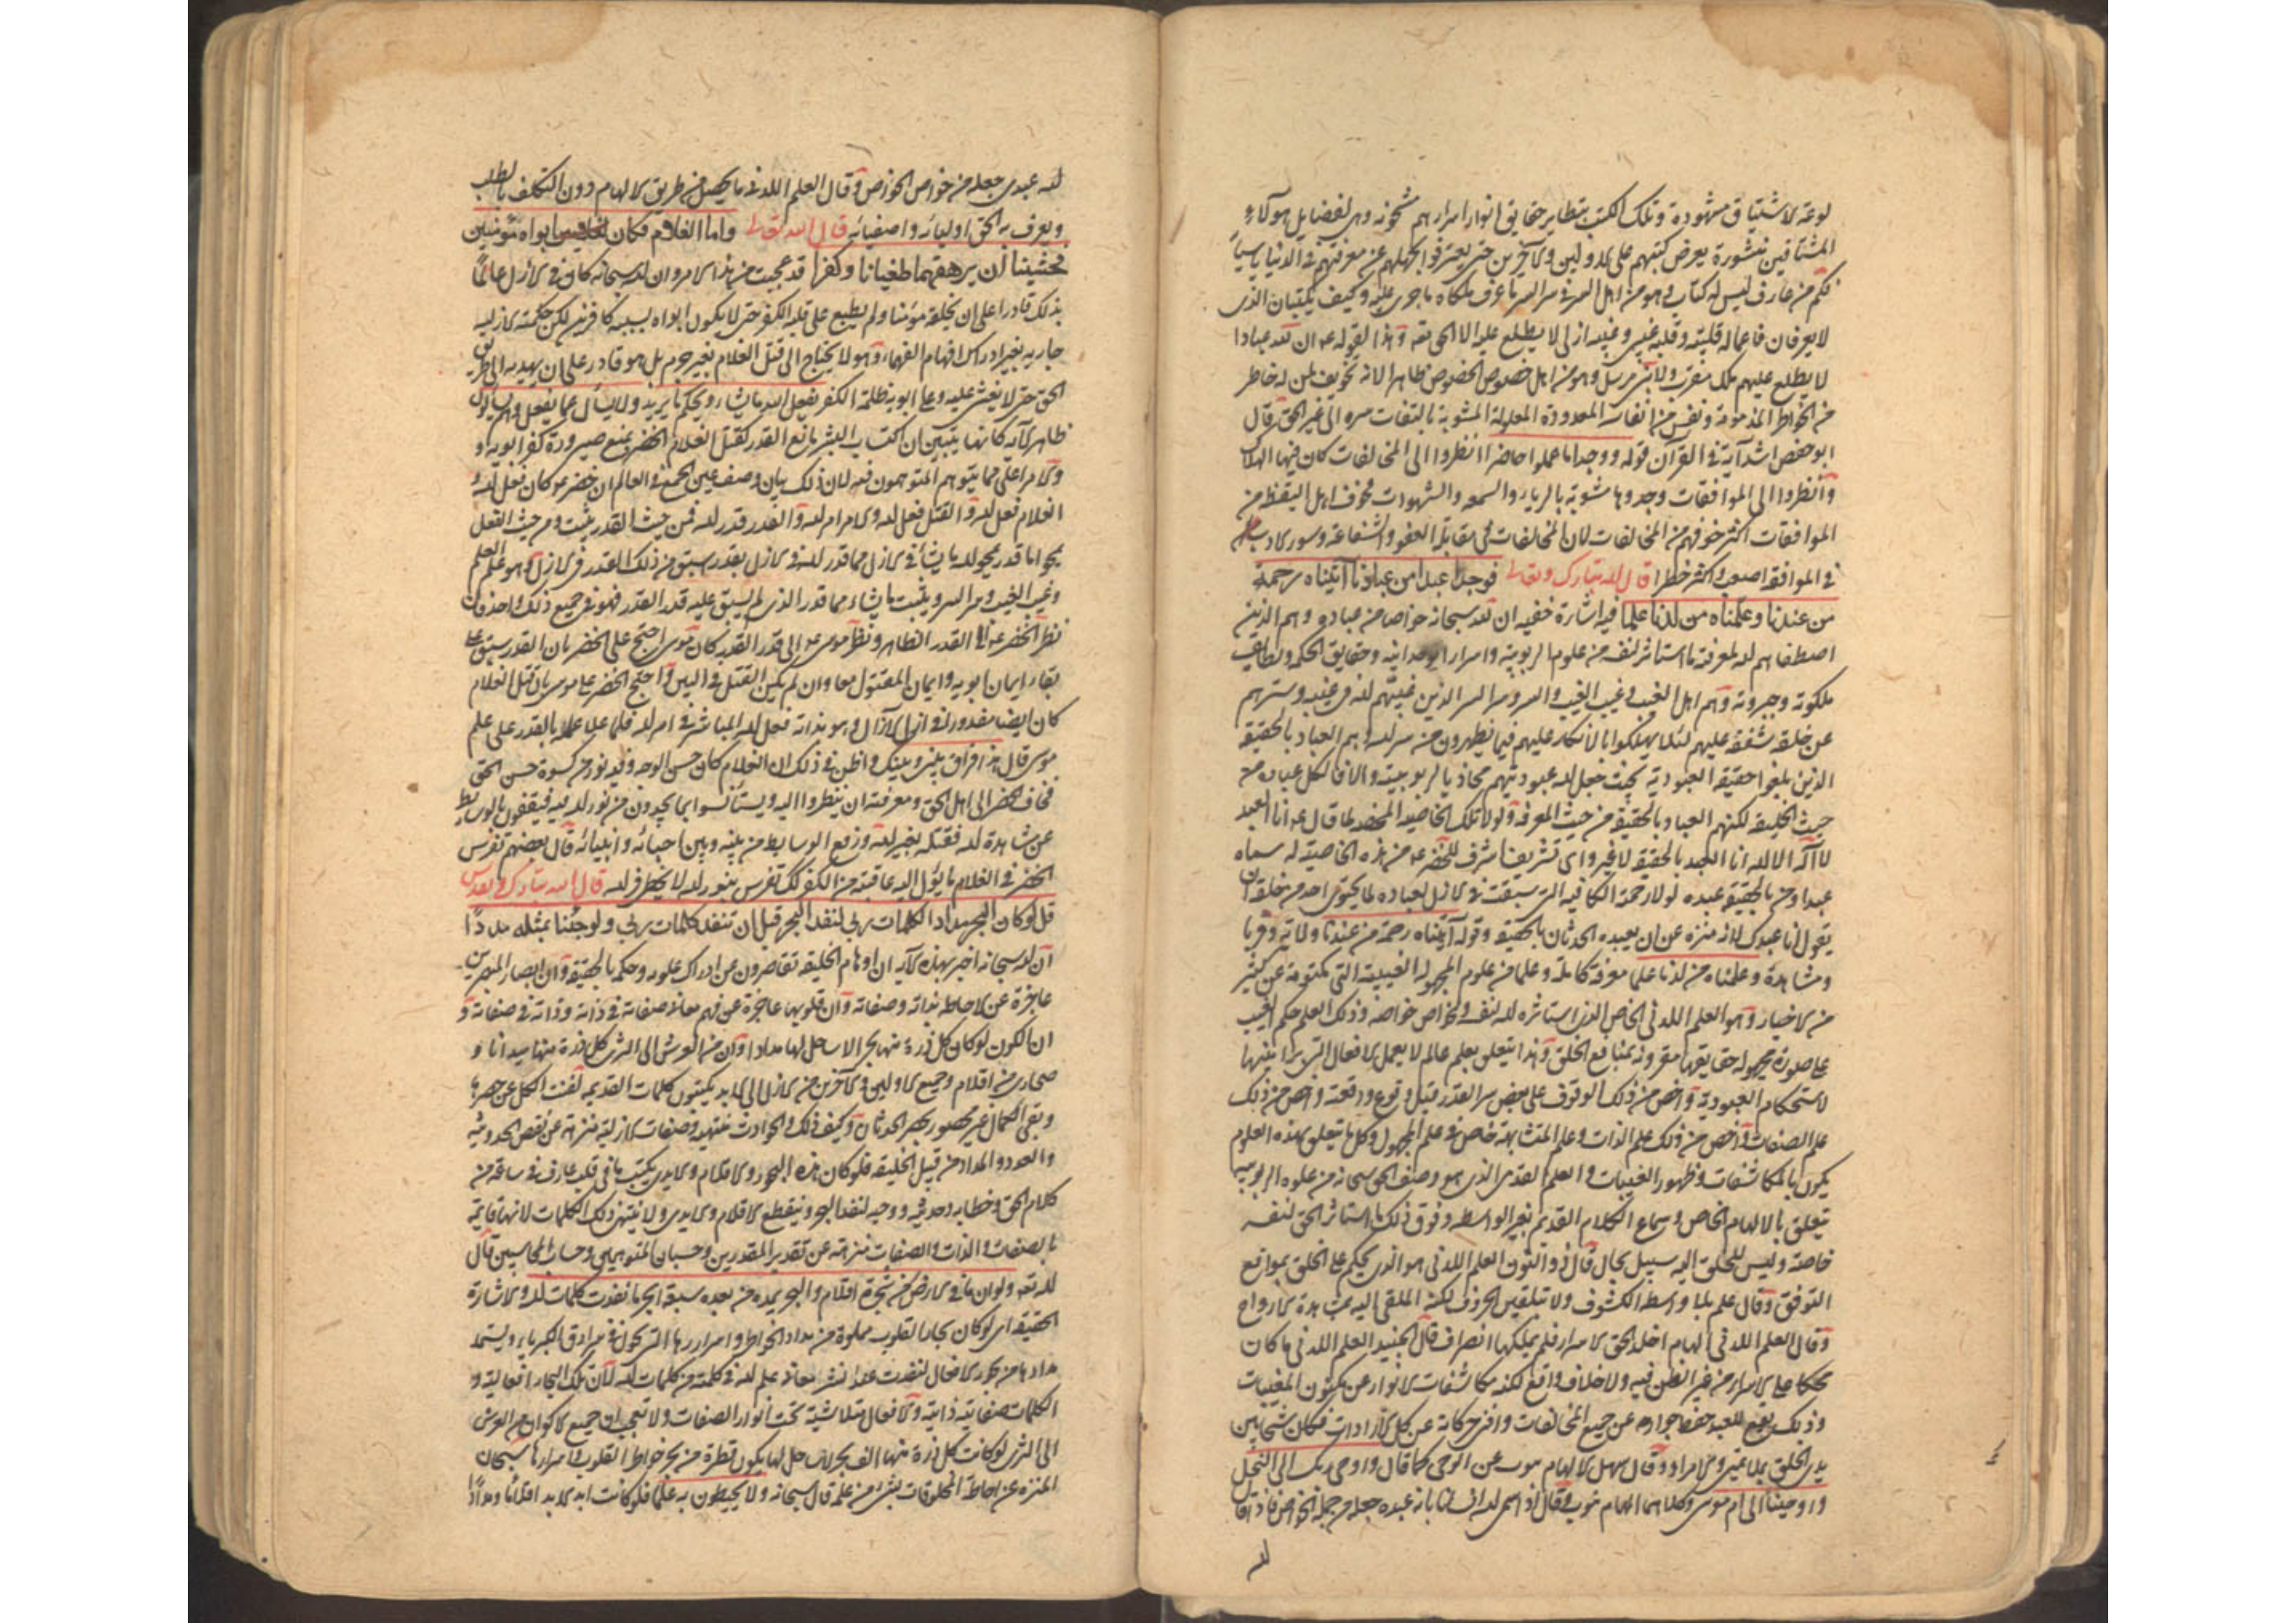 لوعة الاشتياق مشهودة وتلك الكتب بتطاير حقايق انوار اسرارهم مشحونة وهى لفضايل هولآء
المشتاقين منشورة يعرض كتبهم على الاولين والآخرين حتى يعترفوا بجهلهم عن معرفتهم فى الدنيا
فكم من عارف ليس له كتاب وهو من اهل السر وسر السر ما عرف ملكاه ما جرى عليه وكيف يكتبان الذى
لا يعرفان فاعماله قلبية وقلبه غيبى وغيبه ازلى لا يطلع عليه الا الحق تعه وهذا لقوله عم ان لله عبادا
لا يطلع عليهم ملك مقرب ولا نبى مرسل وهو من اهل خصوص الخصوص ظاهر الآية تخويف لمن له خاطر
من الخواطر المذمومة ونفس من انفاسه المعدودة المعلولة المشوبة بالتفات سره الى غير الحق وقال
ابو حفص اشد آية فى القرآن قوله ووجدوا ما عملوا حاضرا انظروا الى المخالفات كان فيها الهلاك
وانظروا الى الموافقات وجدوها مشوبة بالرياء والسمعة والشهوات فخوف اهل اليقظة من
الموافقات اكثر خوفهم من المخالفات لان المخالفات فى مقابلة العفو والشفاعة وسوء الادب
فى الموافقة اصعب واكثر خطرا قال الله تبارك وتعالى فوجدا عبدا من عبادنا آتيناه رحمة
من عندنا وعلمناه من لدنا علما فيه اشارة خفية ان لله سبحانه خواصا من عباده وهم الذين
اصطفاهم الله لمعرفة ما استاثر لنفسه من علوم الربوبية واسرار الوحدانية وحقايق الحكمة ولطايف
ملكوته وجبروته وهم اهل الغيب وغيب الغيب والسر وسر السر الذين غيبهم الله فى غيبه وسترهم
عن خلقه شفقة عليهم لئلا يهلكوا بالانكار عليهم فيما يظهرون من سر الله وهم العباد بالحقيقة
الذين بلغوا حقيقة العبودية بحيث جعل الله عبوديتهم محاذيا لربوبيته والا فالكل عباده من
حيث الخليقة لكنهم العباد بالحقيقة من حيث المعرفة ولولا تلك الخاصية المحضة لما قال عم انا العبد
لا اله الا الله انا العبد بالحقيقة لا غير واى تشريف اشرف للخضر عم من هذه الخاصية له سماه
عبدا ومن بالحقيقة عبده لولا رحمة الكافية التى سبقت فى الازل لعباده لما يجترى احد من خلقه ان
يقول انا عبدك لانه منزه عن ان يعبده الحدثان بالحقيقة وقوله آتيناه رحمة من عندنا ولاية وقربا
ومشاهدة وعلمناه من لدنا علما معرفة كاملة وعلما من علوم المجهولة الغيبية التى مكتومة عن كثير
من الاخيار وهو العلم اللدنى الخاص الذى استاثره الله لنفسه ولخواص خواصه وذلك العلم حكم الغيب
على صورة مجهولة حقايقها مقرونة بمنافع الخلق وهذا يتعلق بعلم عالم لا يعمل الافعال التى برامنها
لاستحكام العبودية واخص من ذلك الوقوف على بعض سر القدر قبل وقوع واقعته واخص من ذلك
علم الصفات واخص من ذلك علم الذات وعلم المتشابهة خاص فى علم المجهول وكل ما يتعلق بهذه العلوم
يكون بالمكاشفات وظهور الغيبات والعلم القدمى الذى هو وصف الحق سبحانه من علوم الربوبية
يتعلق بالالهام الخاص وسماع الكلام القديم بغير الواسطة وفوق ذلك ما استاثر الحق لنفسه
خاصة وليس للخلق اليه سبيل بحال قال ذو النون العلم اللدنى هو الذى يحكم على الخلق بمواقع
التوفيق وقال علم بلا واسطة الكشوف ولا بتلقين الحروف لكنه الملقى اليه بمشاهدة الارواح
وقال العلم اللدنى الهام اخلد الحق الاسرار فلم يملكها انصراف قال الجنيد العلم اللدنى ما كان
محكما على الاسرار من غير الظن فيه ولا خلاف واقع لكنه مكاشفات الانوار عن مكنون المغيبات
وذلك يقع للعبد حفظ جوارحه عن جميع المخالفات وافنى حركاته عن كل الارادات فكان شبحا بين
يدى الخلق بلا تمنى ولا مراد وقال سهل الالهام ينوب عن الوحى كما قال واوحى ربك الى النحل
واوحينا الى ام موسى وكلاهما الهام
لله
لله عبدى جعله من خواص الخواص وقال العلم اللدنى ما يحصل من طريق الالهام دون التكلف بالطلب
ويعرف به الحق اوليائه واصفيائه قال الله تعالى واما الغلام فكان ابواه مؤمنين
فخشينا ان يرهقهما طغيانا وكفرا قد عجبت من هذا الامر وان الله سبحانه كان فى الازل عالما
بذلك قادرا على ان يخلقه مؤمنا ولم يطبع على قلبه الكفر حتى لا يكون ابواه بسببه كافرين لكن حكمته الازلية
جارية بغير ادراك افهام الفهماء وهو لا يحتاج الى قتل الغلام بغير جرم بل هو قادر على ان يهديه الى طريق
الحق حتى لا يغشى عليه وعلى ابويه ظلمة الكفر يفعل الله ما يشاء ويحكم ما يريد ولا يسأل عما يفعل وهم يسألون
ظاهر الآية كانها يتبين ان اكتساب البشر مانع القدر كقتل الغلام الخضر يمنع صيرورة كفر ابويه و
والامر اعلى مما يتوهم المتوهمون فيه لان ذلك بيان وصف عين الجمع فى العالم ان خضر عم كان فعل الله و
الغلام فعل الله والقتل فعل الله والامر امر الله والقدر قدر الله فمن حيث القدر يثبت ومن حيث الفعل
يمحوا ما قدر يمحو الله ما يشاء فى الازل مما قدر الله فى الازل بقدر سبق من ذلك القدر فى الازل وهو علم العلم
وغيب الغيب وسر السر ويثبت ما يشاء مما قدر الذى لم يسبق عليه قدر القدر فهو فى جميع ذلك واحد فان
نظر الخضر عم الى القدر الظاهر ونظر موسى عم الى قدر القدر كان موسى احتج على الخضر بان القدر سبق على
بقاء ايمان ابويه وايمان المقتول معا وان لم يكن القتل فى البين واحتج الخضر على موسى بان قتل الغلام
كان ايضا مقدورا فى ازل الآزال وهو بذاته فعل الله المباشر فى امر الله فلما علا علمه بالقدر على علم
موسى قال هذا فراق بينى وبينك واظن فى ذلك ان الغلام كان حسن الوجه وفيه نور من كسوة حسن الحق
فخاف الخضر الى اهل الحق ومعرفته ان ينظروا اليه ويستأنسوا بما يجدون من نور الله فيه فيقفون بالوسايط
عن مشاهدة الله فقتله بغيرة الله ورفع الوسايط من بينه وبين احبائه وانبيائه قال بعضهم تفرس
الخضر فى الغلام ما يؤل اليه عاقبته من الكفر لك تفرس بنور الله لا يخطر فى الله قال الله تبارك وتقدس
قل لو كان البحر مدادا لكلمات ربى لنفد البحر قبل ان تنفد كلمات ربى ولو جئنا بمثله مددا
ان الله سبحانه اخبر بهذه الآية ان اوهام الخليقة تقاصرون عن ادراك علومه وحكمه بالحقيقة وان ابصار المبصرين
عاجزة عن الاحاطة بذاته وصفاته وان قلوبها عاجزة عن فهم معانى صفاته فى ذاته وذاته فى صفاته و
ان الكون لو كان كل ذرة منها بحر لا ساحل لها مدادا وان من العرش الى الثرى كل ذرة منها ميدانا و
صحارى من اقلام وجميع الاولين والآخرين من الازل الى الابد يكتبون كلمات القديمة لفنت الكل عن حصرها
وبقى الكمال غير محصور بحصر الحدثان وكيف ذلك والحوادث متناهية وصفات الازلية منزهة عن نقص الحدوثية
والعدد والمداد من قبيل الخليقة فلو كان هذه البحور والاقلام والايدى يكتب ما فى قلب عارف فى ساعة من
كلام الحق وخطابه وحديثه ووحيه لنفد البحر وينقطع الاقلام والايدى ولا ينتهى ذلك الكلمات لانها قايمة
بالصفات والذات والصفات منزهة عن تقدير المقدرين وحسبان المتوهمين وحساب الحاسبين قال
الله تعه ولو ان ما فى الارض من شجرة اقلام والبحر يمده من بعده سبعة ابحر ما نفدت كلمات الله والاشارة
الحقيقة اى لو كان بحار القلوب مملوة من مداد الخواطر واسرارها التى تجول فى سرادق الكبرياء ويستمد
مدادها من بحور الافعال لنفدت عند نشر معانى علم الله فى كلمة من كلمات الله لان تلك البحار افعالية و
الكلمات صفاتية ذاتية والافعال متلاشية تحت انوار الصفات ولا تعجب ان جميع الاكوان من العرش
الى الثرى لو كانت كل ذرة منها الف بحر لا ساحل لها يكون قطرة من بحر خواطر القلوب واسرارها سبحان
المنزه عن احاطة المخلوقات بشئ من علمه قال سبحانه ولا يحيطون به علما فلو كانت ابد الابد اقلاما ومدادا